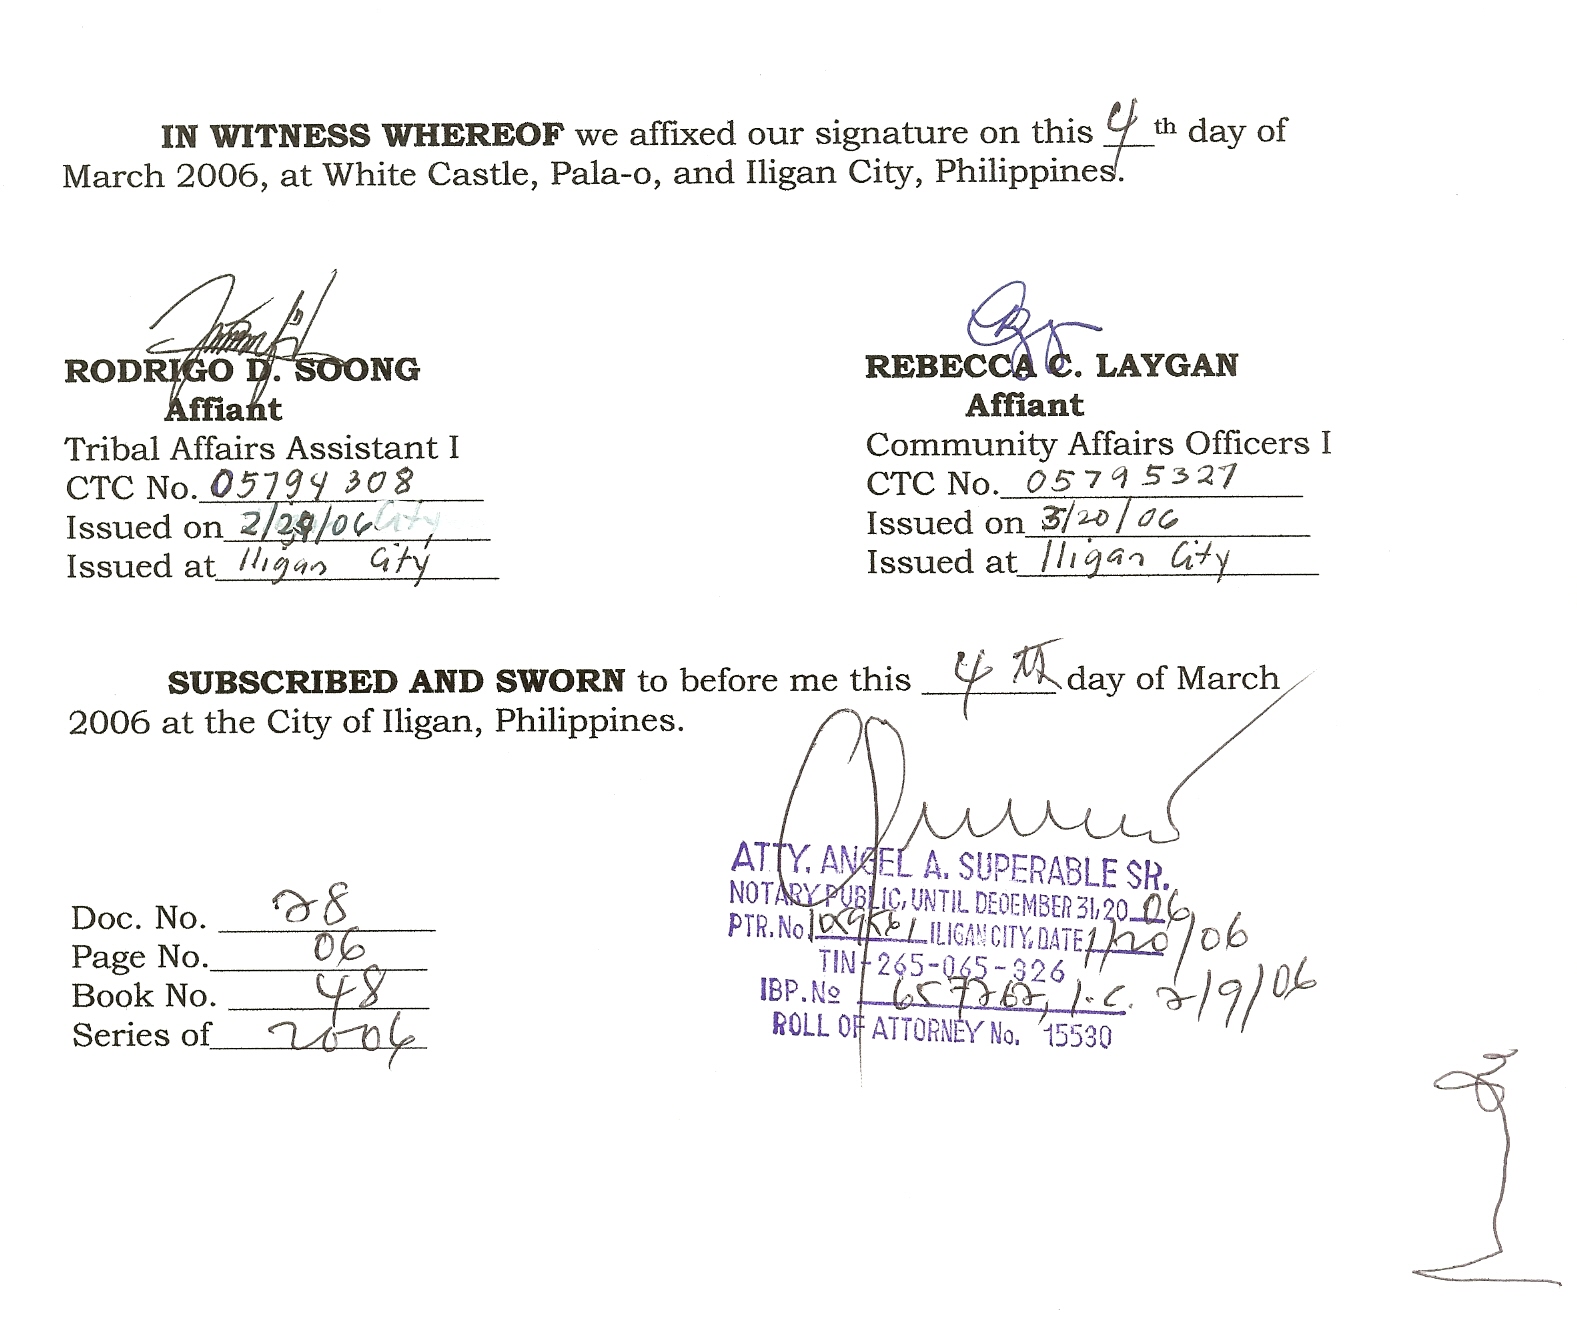 IN WITNESS WHEREOF we affixed our signature on this 4 th day of
March 2006, at White Castle, Pala-o, and Iligan City, Philippines.
RODRIGO D. SOONG
Affiant
Tribal Affairs Assistant I
CTC No. 05794308
Issued on 2/2 /06
Issued at Iligan City
REBECCA C. LAYGAN
Affiant
Community Affairs Officers I
CTC No. 05795327
Issued on 3/20/06
Issued at Iligan City
SUBSCRIBED AND SWORN to before me this 4th day of March
2006 at the City of Iligan, Philippines.
Doc. No. 28
Page No. 06
Book No. 48
Series of 2006
ATTY. ANGEL A. SUPERABLE SR.
NOTARY PUBLIC, UNTIL DECEMBER 31, 20 06
PTR. No ILIGAN CITY, DATE 1/20/06
TIN-265-065-326
IBP. No 657262, I.C. 2/9/06
ROLL OF ATTORNEY No. 15530